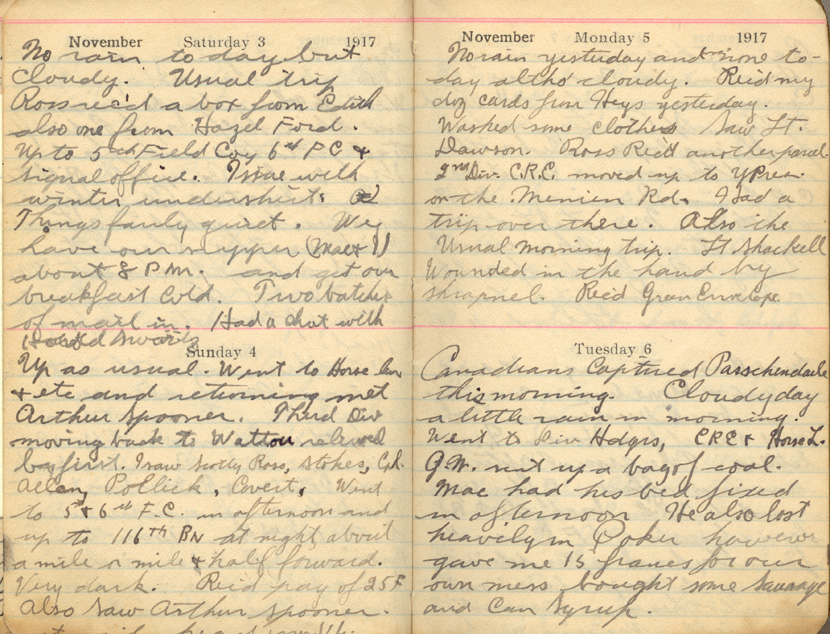 November Saturday 3 1917
No rain to day but
cloudy. Usual trip
Ross rec'd a box from Edith
also one from Hazel Ford.
Up to 5th Field Coy 6th P C &
signal office. Issue with
winter undershirts
Things fairly quiet. We
have our supper (Mac & I)
about 8 P.M. and get our
breakfast cold. Two batches
of mail in. Had a chat with
Harold
Sunday 4
Up as usual. Went to Horse lines
& etc and returning met
Arthur Spooner. Third Div
moving back to Watou relieved
by first. I saw Scotty Ross, Stokes, Cpl.
Allen, Pollick, Covert. Went
to 5th & 6th F.C. in afternoon and
up to 116th BN at night about
a mile or mile & half forward.
Very dark. Rec'd pay of 25F
Also saw Arthur Spooner.
November Monday 5 1917
No rain yesterday and none to-
day altho' cloudy. Rec'd my
doz cards from Heys yesterday.
Washed some clothes Saw Lt.
Dawson. Ross Rec'd another parcel
2nd Div. C.R.E. moved up to Ypres
on the Menin Rd. Had a
trip over there. Also the
Usual morning trip. Lt Shackell
Wounded in the hand by
shrapnel. Rec'd Green Envelope
Tuesday 6
Canadians Captured Passchendaele
this morning. Cloudy day
a little rain in morning.
Went to Div Hdqrs, CRE & Horse L.
G.W. up a bag of coal.
Mac had his bed fixed
in afternoon He also lost
heavily in Poker however
gave me 15 francs for our
own mess bought some sausage
and Can Syrup.